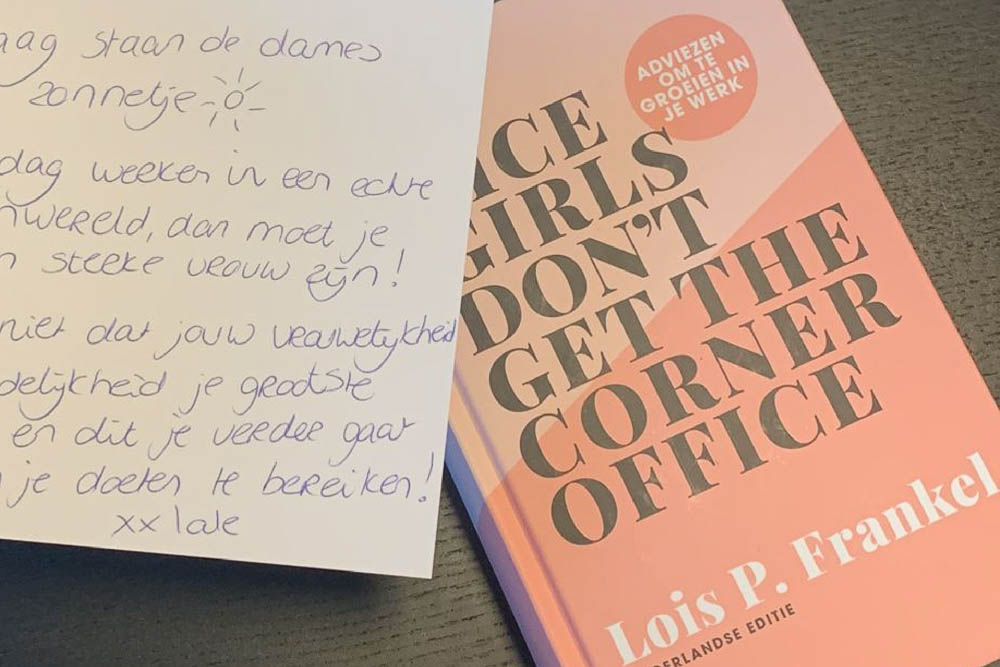 aag staan de dames
zonnetje
dag werken in een echte
nwereld, dan moet je
n sterke vrouw zijn!
niet dat jouw vrouwelijkheid
delijkheid je grootste
en dit je verder gaat
je doelen te bereiken!
xx lale
ADVIEZEN
OM TE
GROEIEN IN
JE WERK
ICE
GIRLS
DON'T
GET THE
CORNER
OFFICE
Lois P. Frankel
DERLANDSE EDITIE